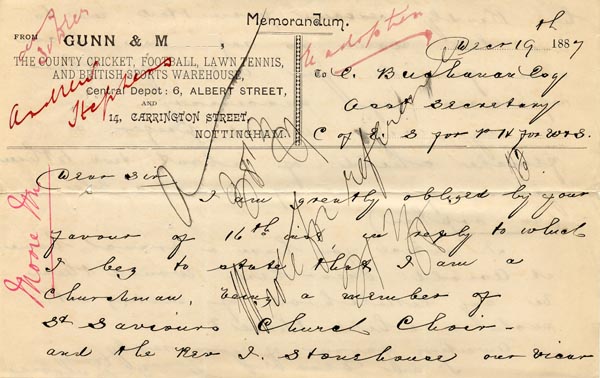 Memorandum.
FROM GUNN & M ,
THE COUNTY CRICKET, FOOTBALL, LAWN TENNIS,
AND BRITISH SPORTS WAREHOUSE,
Central Depot: 6, ALBERT STREET,
AND
14, CARRINGTON STREET,
NOTTINGHAM.
Andrew
Stephens
adoption
Decr 19th 1887
To C. Buchanan Esq
Asst Secretary
C of E. S for P H for W & S.
Dear Sir
I am greatly obliged by your
favour of 16th inst in reply to which
I beg to state that I am a
Churchman, being a member of
St Saviours Church Choir -
and the Rev J. Stonehouse our vicar
Moore
Wrote for